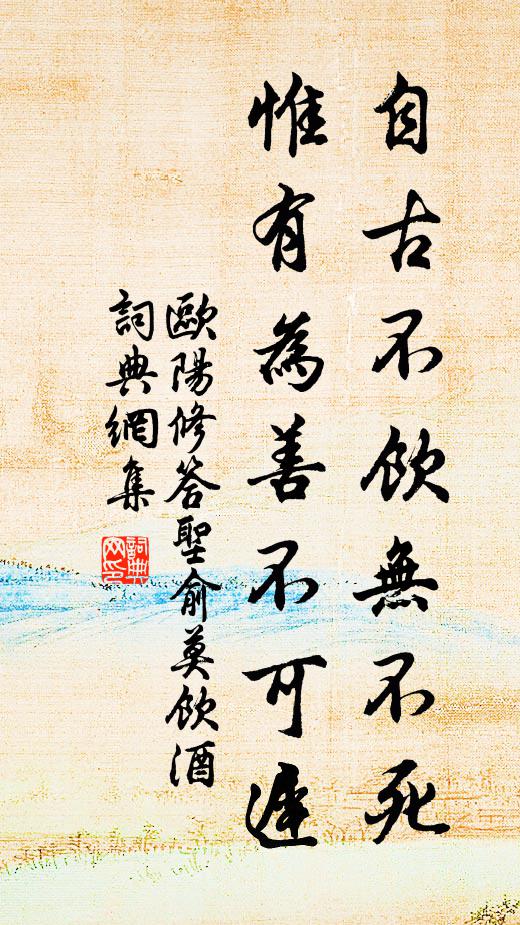 自古不飲無不死
惟有為善不可遲
歐陽修答聖俞莫飲酒
詞典網集
詞典网印